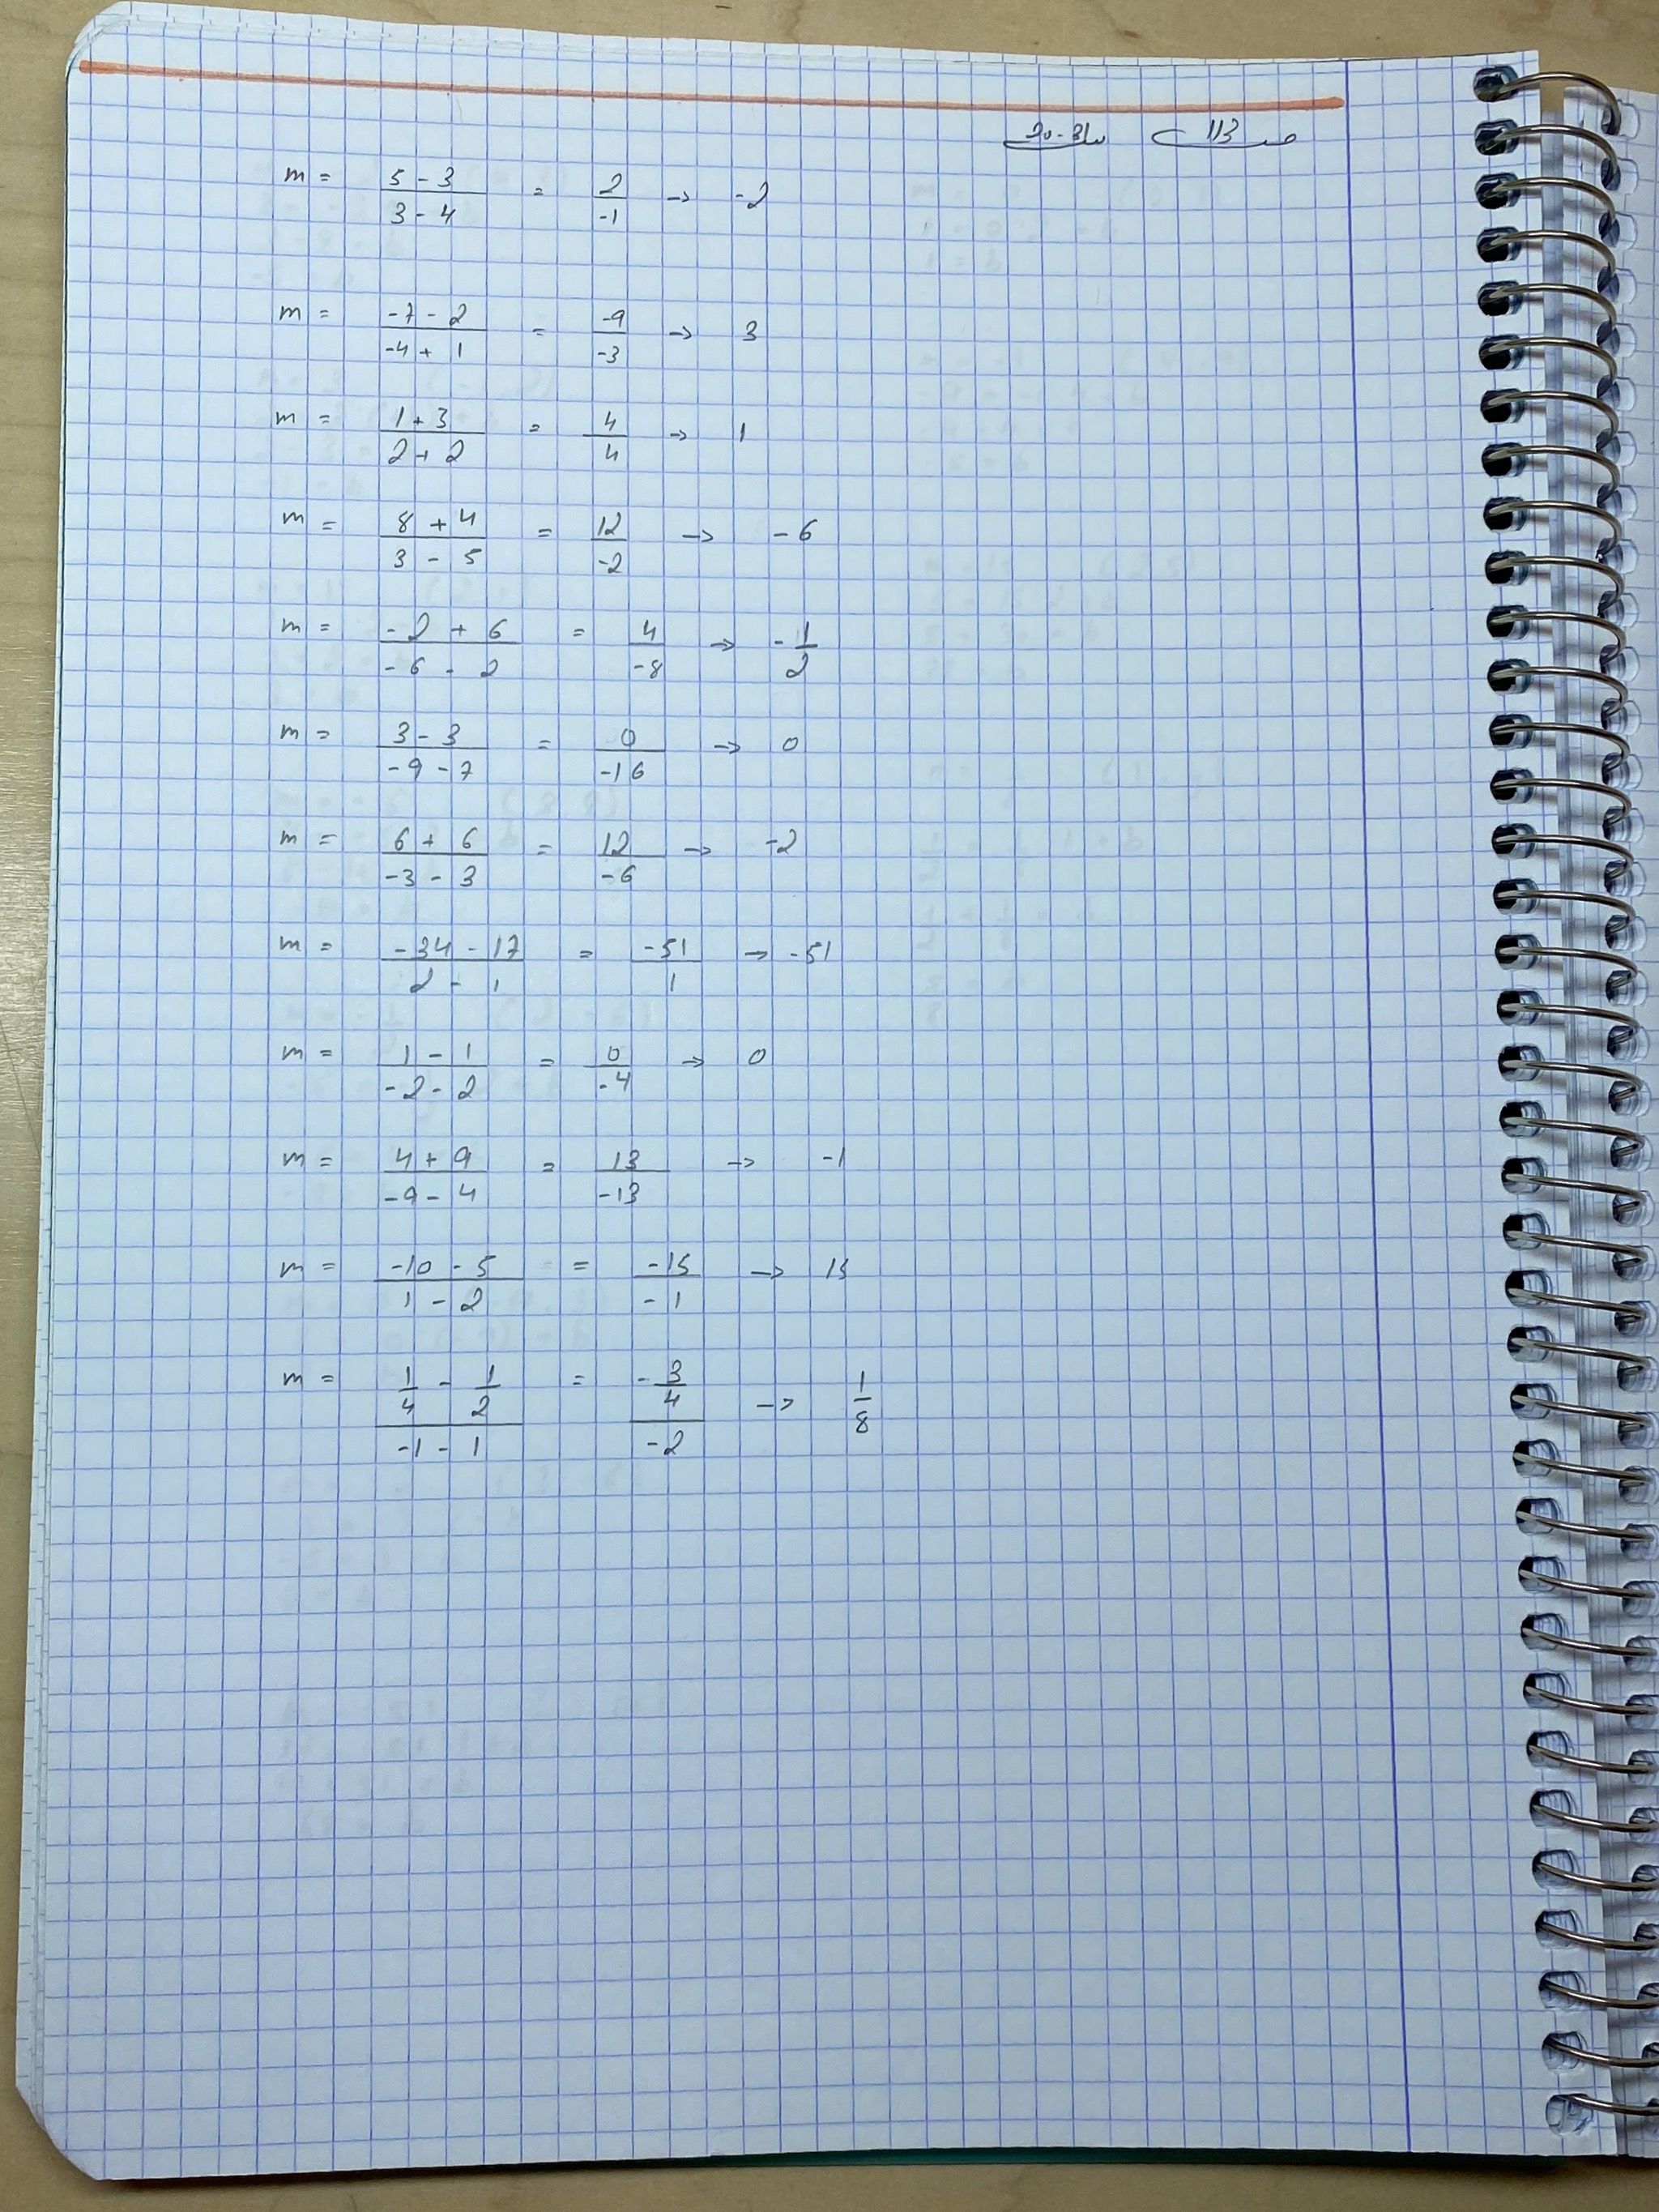 صـ 113 سـ 20-31
m = (5 - 3)/(3 - 4) = 2/-1 → -2
m = (-7 - 2)/(-4 + 1) = -9/-3 → 3
m = (1 + 3)/(2 + 2) = 4/4 → 1
m = (8 + 4)/(3 - 5) = 12/-2 → -6
m = (-2 + 6)/(-6 - 2) = 4/-8 → -1/2
m = (3 - 3)/(-9 - 7) = 0/-16 → 0
m = (6 + 6)/(-3 - 3) = 12/-6 → -2
m = (-34 - 17)/(2 - 1) = -51/1 → -51
m = (1 - 1)/(-2 - 2) = 0/-4 → 0
m = (4 + 9)/(-9 - 4) = 13/-13 → -1
m = (-10 - 5)/(1 - 2) = -15/-1 → 15
m = (1/4 - 1/2)/(-1 - 1) = (-3/4)/-2 → 1/8